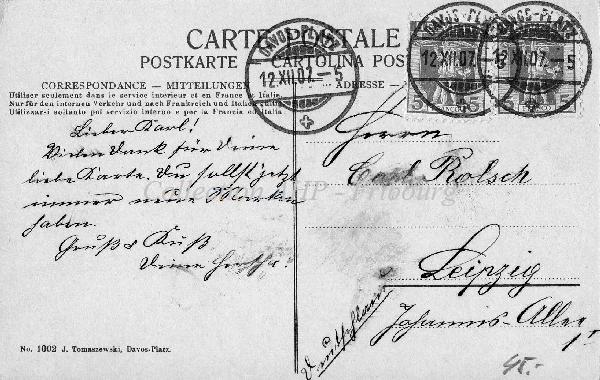 CARTE POSTALE
POSTKARTE — CARTOLINA POS
CORRESPONDANCE — MITTEILUNGEN
ADRESSE
Utiliser seulement dans le service intérieur et en France et Italie
Nur für den internen Verkehr und nach Frankreich und Italien gültig
Utilizzarsi soltanto pel servizio interno e per la Francia ed Italia
DAVOS-PLATZ
12.XII.07.–5
DAVOS-PLATZ
12.XII.07.–5
DAVOS-PLATZ
5
5
5
Lieber Karl!
Vielen Dank für Deine
liebe Karte. Du sollst jetzt
immer neue Marken
haben.
Gruß & Kuß
Deine
Herrn
Carl Rolsch
Leipzig
Johannis-Allee
Collection - Fribourg
No. 1002 J. Tomaszewski, Davos-Platz.
45.-